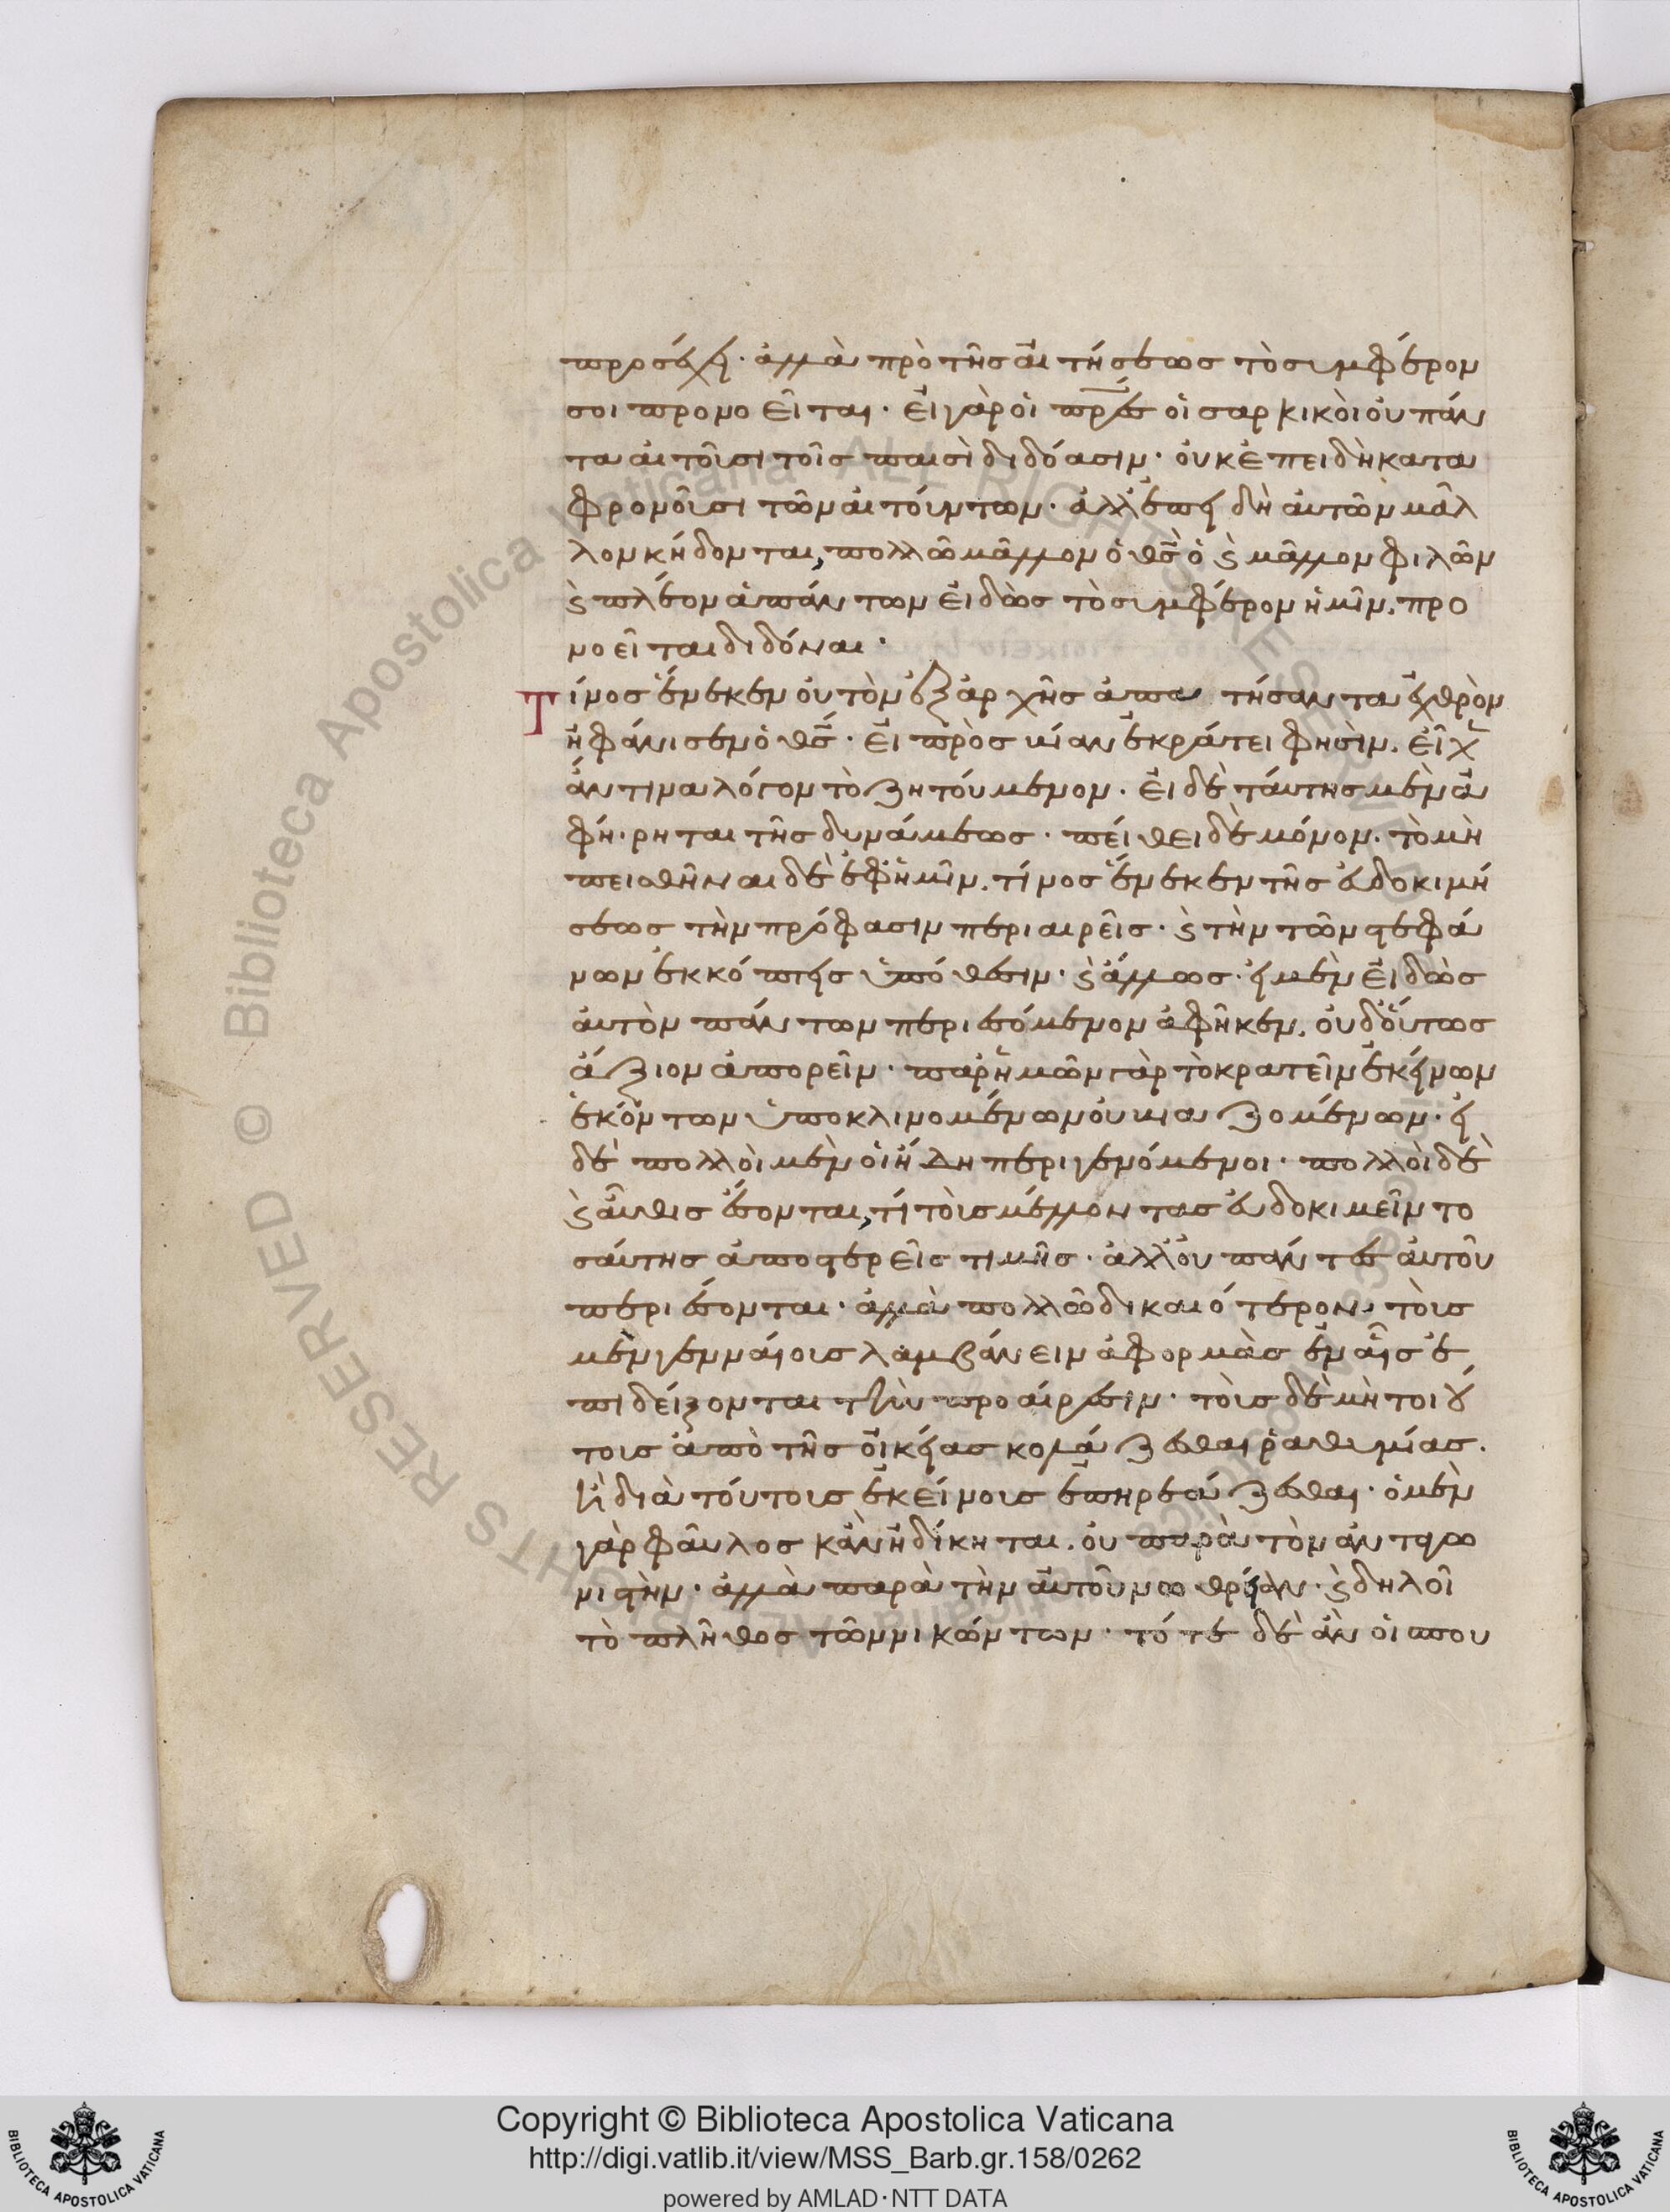 προσέχει· ἀλλὰ πρὸ τῆς αἰτήσεως τὸ συμφέρον
σοι προνοεῖται· εἰ γὰρ οἱ πρ̅ες οἱ σαρκικοὶ οὐ πάν
τα αἰτοῦσι τοῖς παισὶ διδόασιν· οὐκ ἐπειδὴ κατα
φρονοῦσι τῶν αἰτούντων· ἀλλ' ἐπειδὴ αὐτῶν μᾶλ
λον κήδονται, πολλῶ μᾶλλον ὁ θ̅ς ὁ ϗ μᾶλλον φιλῶν
ϗ πλέον ἁπάντων εἰδὼς τὸ συμφέρον ἡμῖν. προ
νοεῖται διδόναι·
Τίνος ἕνεκεν οὐ τὸν ἐξ ἀρχῆς ἀπατήσαντα ἐχθρὸν
ἠφάνισεν ὁ θ̅ς· εἰ πρὸς βίαν ἐκράτει φησὶν. εἶχ
ἄν τινα λόγον τὸ ζητούμενον· εἰ δὲ ταύτης μὲν ἀ
φήρηται τῆς δυνάμεως· πείθει δὲ μόνον. τὸ μὴ
πεισθῆναι δὲ ἐφ' ἡμῖν. τίνος ἕνεκεν τῆς εὐδοκιμή
σεως τὴν πρόφασιν περιαιρεῖς· ϗ τὴν τῶν στεφά
νων ἐκκόπτεις ὑπόθεσιν· ϗ ἄλλως· εἰ μὲν εἰδὼς
αὐτὸν πάντων περιεσόμενον ἀφῆκεν. οὐδ' οὕτως
ἄξιον ἀπορεῖν· παρ' ἡμῶν γὰρ τὸ κρατεῖν ἐκείνων
ἑκόντων ὑποκλινομένων οὐ βιαζομένων· εἰ
δὲ πολλοὶ μὲν οἱ ἤδη περιγενόμενοι· πολλοὶ δὲ
ϗ αὖθις ἔσονται, τί τοὺς μέλλοντας εὐδοκιμεῖν το
σαύτης ἀποστερεῖς τιμῆς· ἀλλ' οὐ πάντες αὐτοῦ
περιέσονται· ἀλλὰ πολλῶ δικαιότερον, τοὺς
μὲν γενναίους λαμβάνειν ἀφορμὰς ἐν αἷς ἐ
πιδείξονται τὴν προαίρεσιν· τοὺς δὲ μὴ τοιού
τους ἀπὸ τῆς οἰκείας κολάζεσθαι ῥαθυμίας.
ἢ διὰ τούτους ἐκείνους ἐπηρεάζεσθαι· ὁ μὲν
γὰρ φαῦλος κἂν ἠδίκηται. οὐ παρὰ τὸν ἀνταγω
νιστὴν· ἀλλὰ παρὰ τὴν αὐτοῦ νωθρείαν· ϗ δηλοῖ
τὸ πλῆθος τῶν νικώντων· τότε δὲ ἂν οἱ σπου